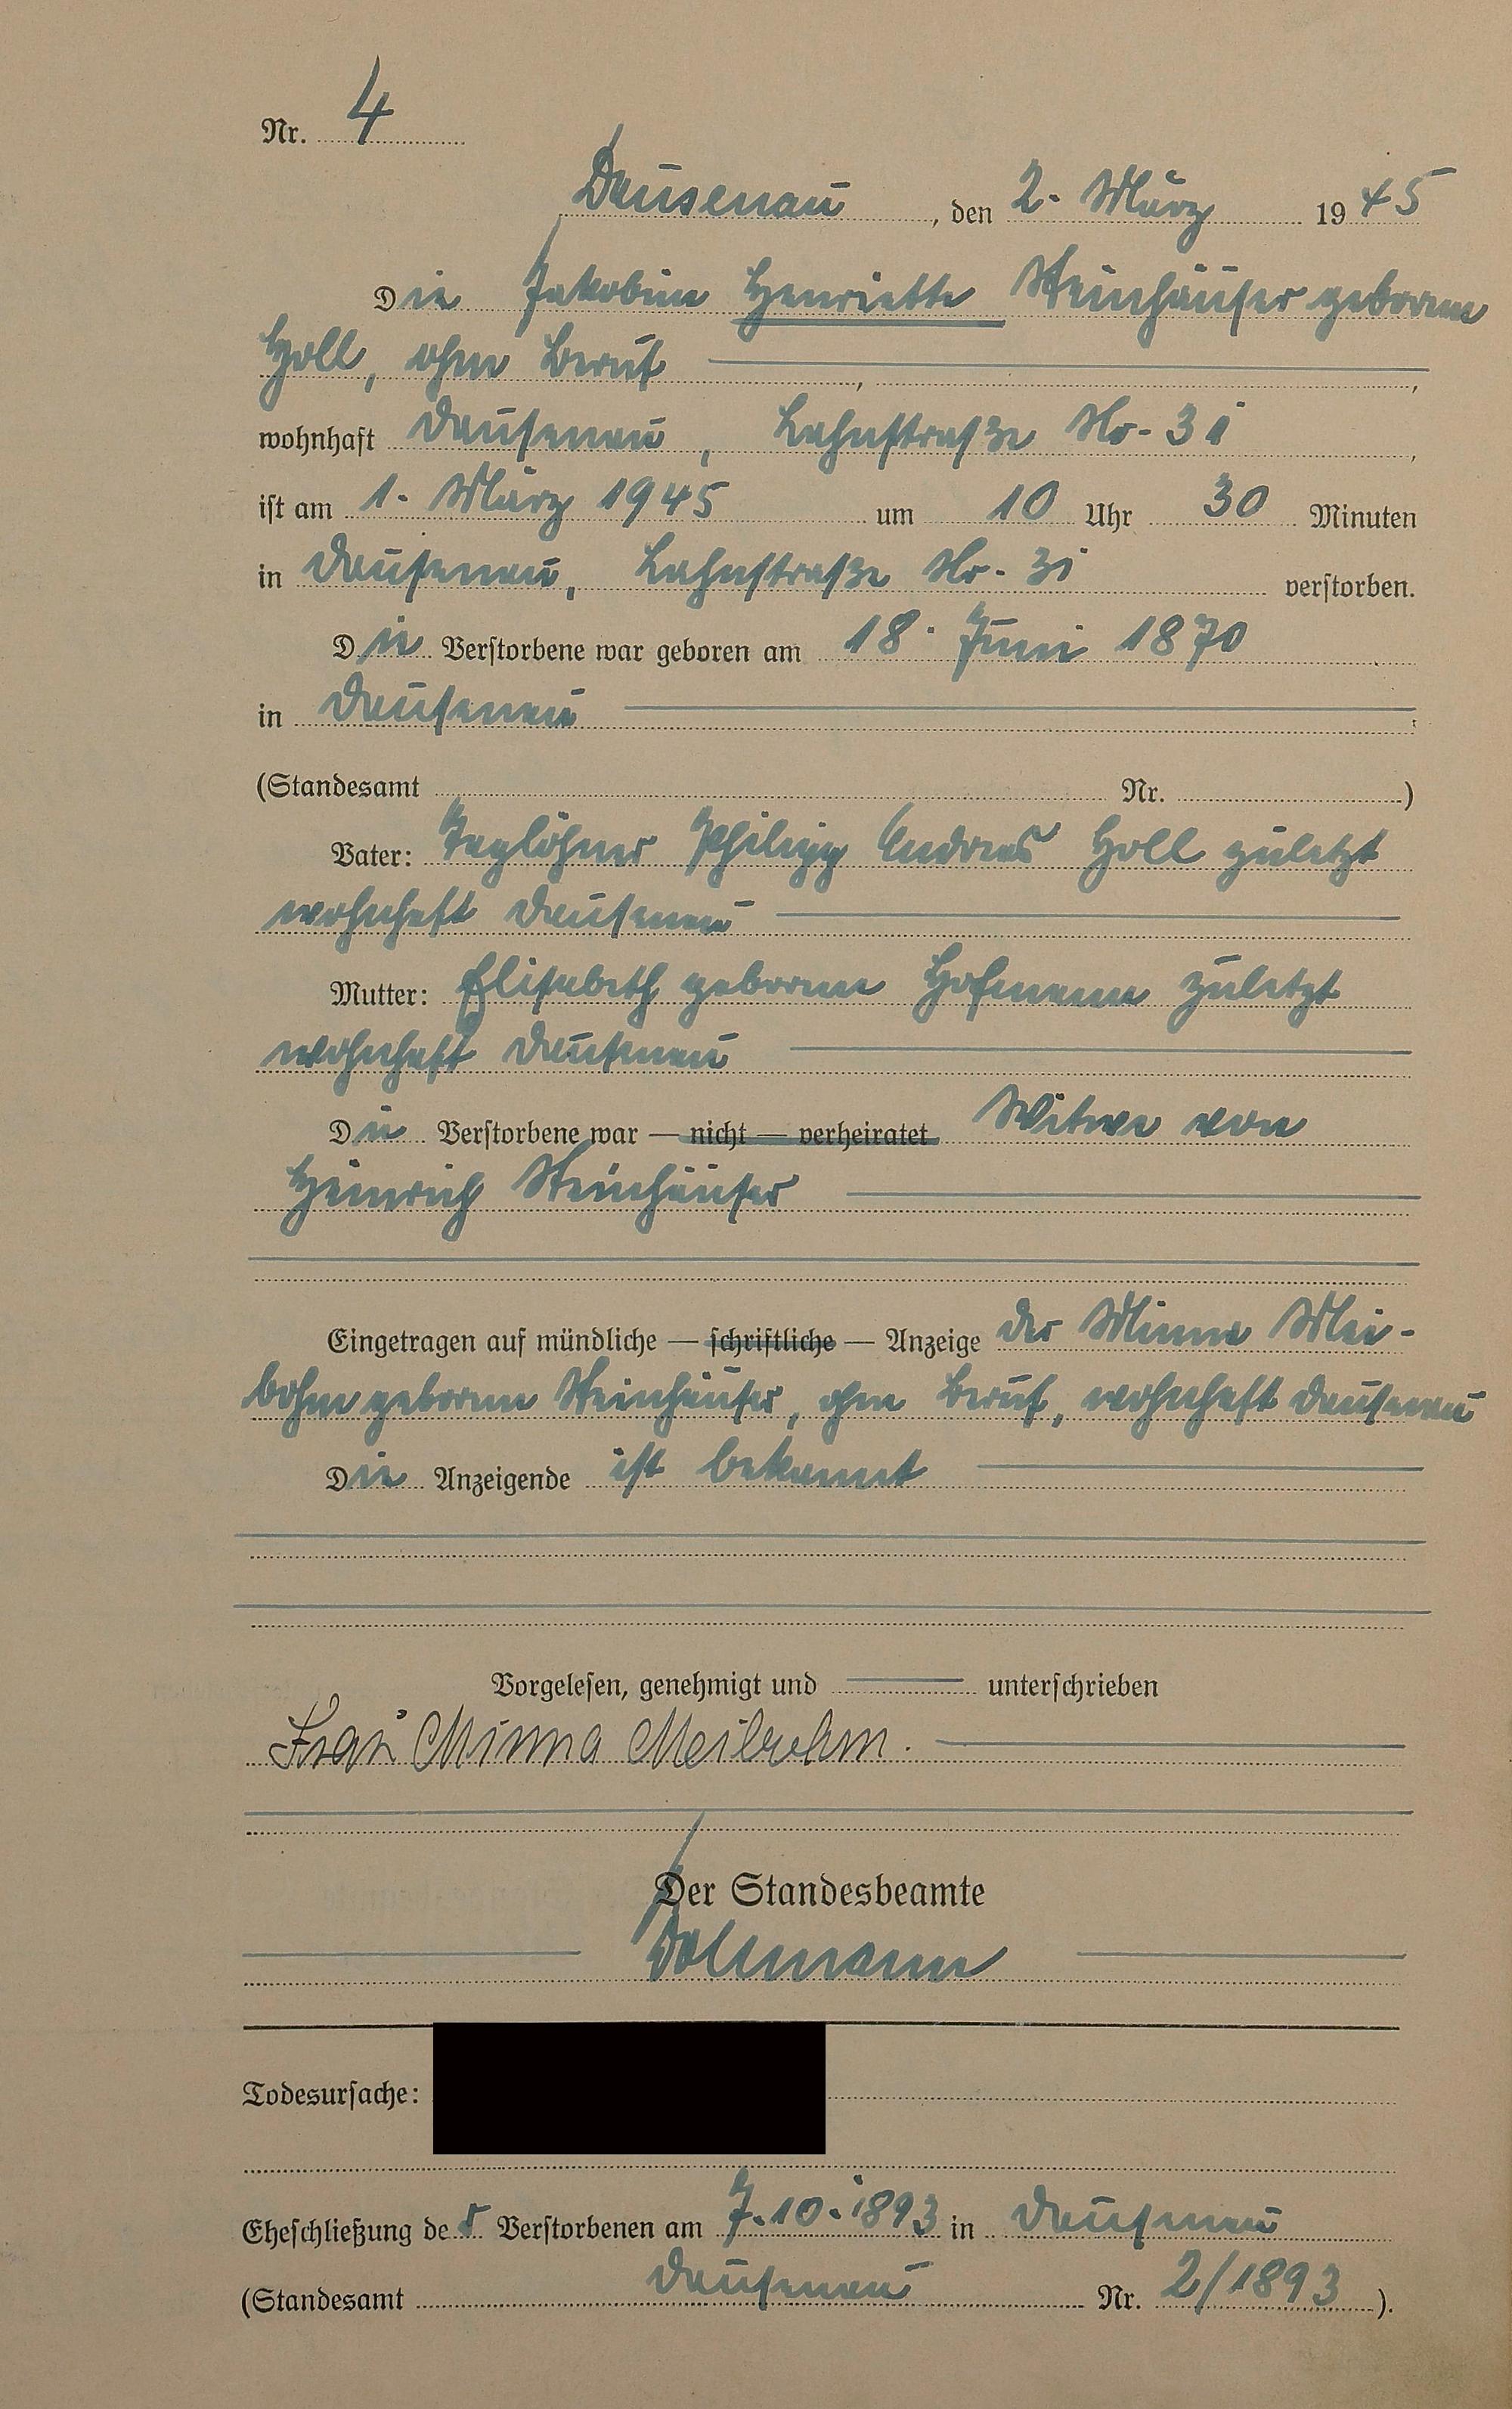 Nr. 4
Dausenau, den 2. März 1945
Die Jakobine Henriette Steinhäuser geborene
Holl, ohne Beruf
wohnhaft Dausenau, Lahnstraße Nr. 31,
ist am 1. März 1945 um 10 Uhr 30 Minuten
in Dausenau, Lahnstraße Nr. 31 verstorben.
Die Verstorbene war geboren am 18. Juni 1870
in Dausenau
(Standesamt Nr. )
Vater: Taglöhner Philipp Andreas Holl zuletzt
wohnhaft Dausenau
Mutter: Elisabeth geborene Hofmann zuletzt
wohnhaft Dausenau
Die Verstorbene war — nicht — verheiratet Witwe von
Heinrich Steinhäuser
Eingetragen auf mündliche — schriftliche — Anzeige der Minna Mei-
bohm geborene Steinhäuser, ohne Beruf, wohnhaft Dausenau
Die Anzeigende ist bekannt
Vorgelesen, genehmigt und unterschrieben
Frau Minna Meibohm.
Der Standesbeamte
Todesursache:
Eheschließung der Verstorbenen am 7.10.1893 in Dausenau
(Standesamt Dausenau Nr. 2/1893 ).